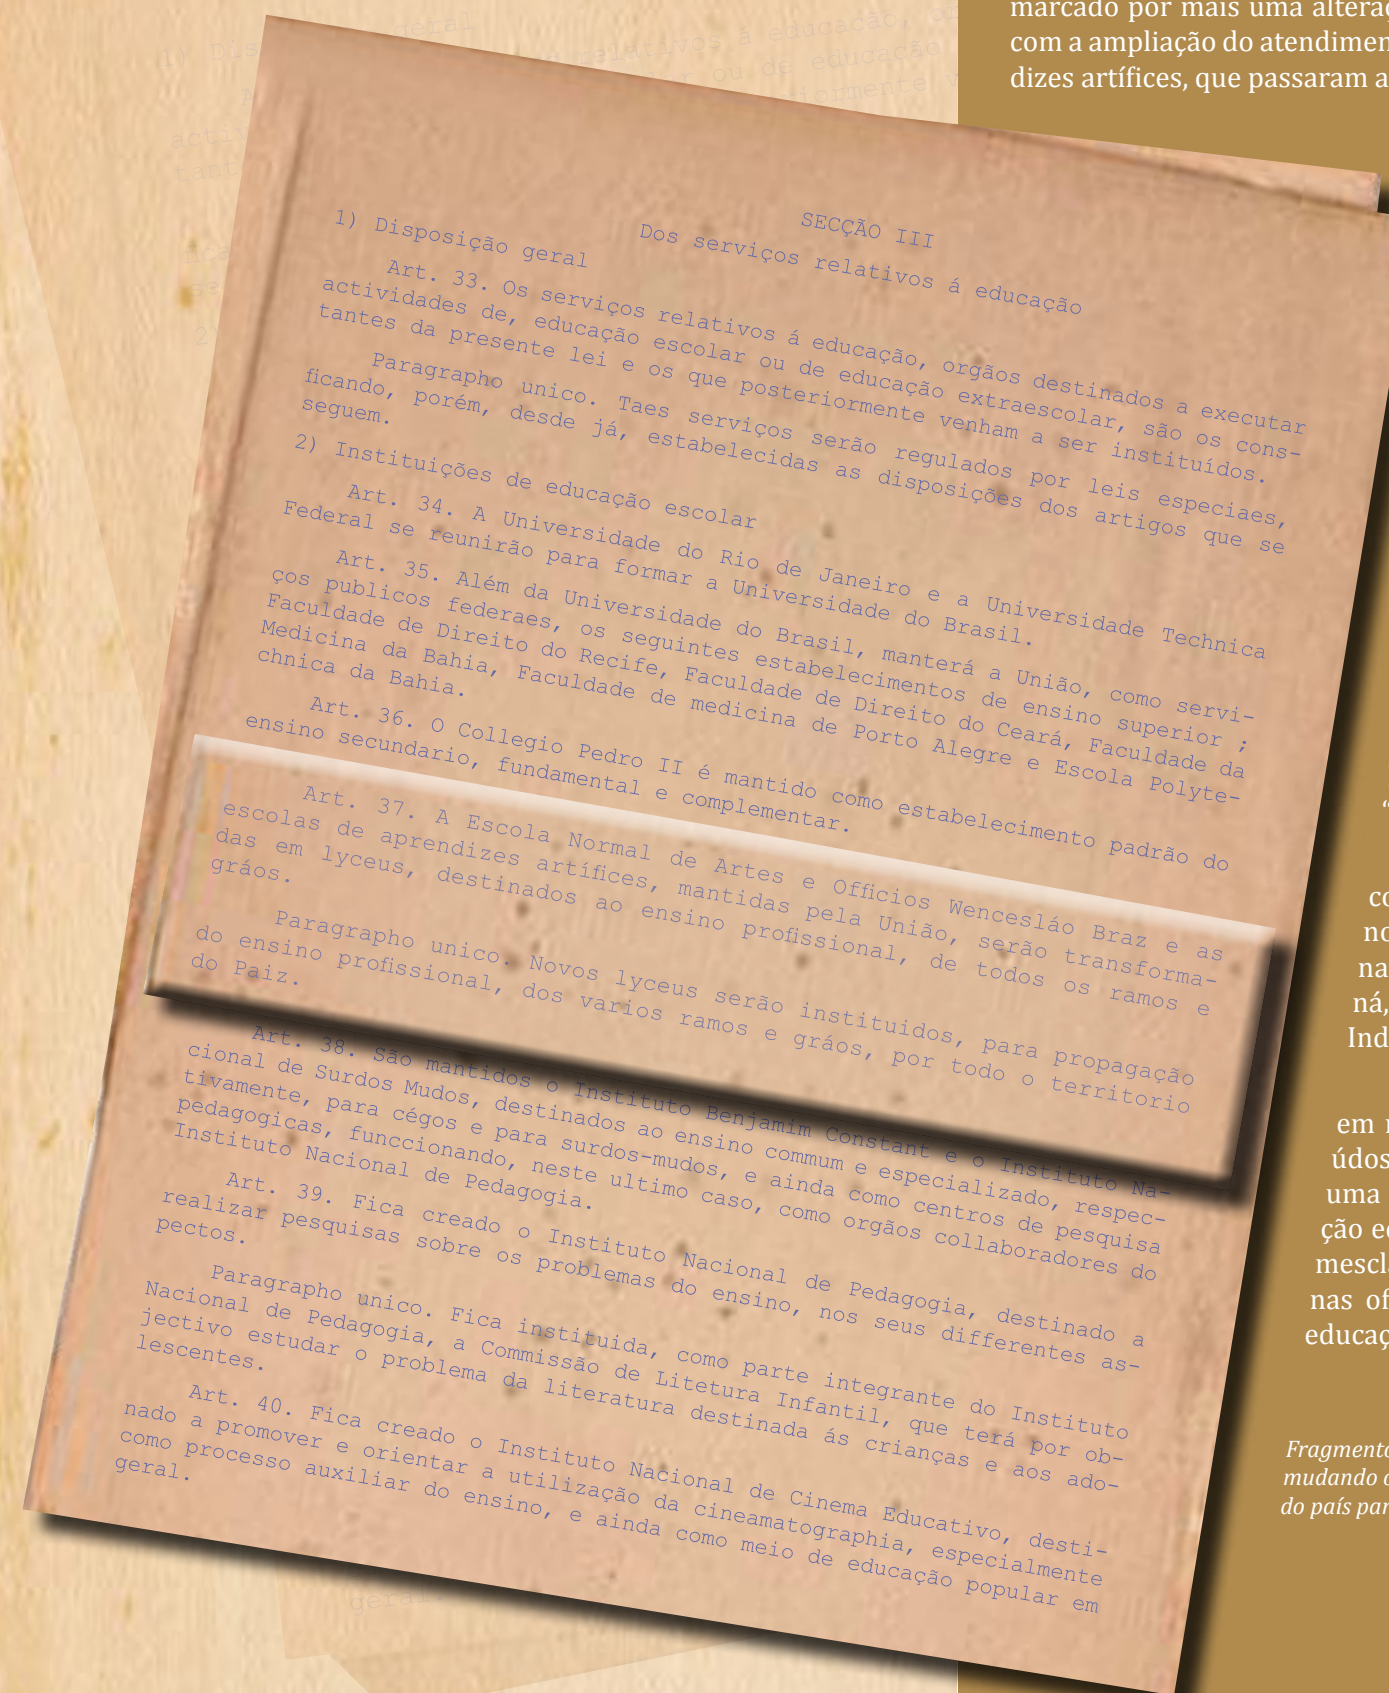 marcado por mais uma alteraç
com a ampliação do atendimen
dizes artífices, que passaram a
SECÇÃO III
Dos serviços relativos á educação
1) Disposição geral
Art. 33. Os serviços relativos á educação, orgãos destinados a executar
actividades de, educação escolar ou de educação extraescolar, são os cons-
tantes da presente lei e os que posteriormente venham a ser instituídos.
Paragrapho unico. Taes serviços serão regulados por leis especiaes,
ficando, porém, desde já, estabelecidas as disposições dos artigos que se
seguem.
2) Instituições de educação escolar
Art. 34. A Universidade do Rio de Janeiro e a Universidade Technica
Federal se reunirão para formar a Universidade do Brasil.
Art. 35. Além da Universidade do Brasil, manterá a União, como servi-
ços publicos federaes, os seguintes estabelecimentos de ensino superior ;
Faculdade de Direito do Recife, Faculdade de Direito do Ceará, Faculdade da
Medicina da Bahia, Faculdade de medicina de Porto Alegre e Escola Polyte-
chnica da Bahia.
Art. 36. O Collegio Pedro II é mantido como estabelecimento padrão do
ensino secundario, fundamental e complementar.
Art. 37. A Escola Normal de Artes e Officios Wencesláo Braz e as
escolas de aprendizes artífices, mantidas pela União, serão transforma-
das em lyceus, destinados ao ensino profissional, de todos os ramos e
gráos.
Paragrapho unico. Novos lyceus serão instituidos, para propagação
do ensino profissional, dos varios ramos e gráos, por todo o territorio
do Paiz.
Art. 38. São mantidos o Instituto Benjamim Constant e o Instituto Na-
cional de Surdos Mudos, destinados ao ensino commum e especializado, respec-
tivamente, para cégos e para surdos-mudos, e ainda como centros de pesquisa
pedagogicas, funccionando, neste ultimo caso, como orgãos collaboradores do
Instituto Nacional de Pedagogia.
Art. 39. Fica creado o Instituto Nacional de Pedagogia, destinado a
realizar pesquisas sobre os problemas do ensino, nos seus differentes as-
pectos.
Paragrapho unico. Fica instituida, como parte integrante do Instituto
Nacional de Pedagogia, a Commissão de Litetura Infantil, que terá por ob-
jectivo estudar o problema da literatura destinada ás crianças e aos ado-
lescentes.
Art. 40. Fica creado o Instituto Nacional de Cinema Educativo, desti-
nado a promover e orientar a utilização da cineamatographia, especialmente
como processo auxiliar do ensino, e ainda como meio de educação popular em
geral.
“
co
no
na
ná,
Ind
em
údos
uma
ção e
mescl
nas of
educaç
Fragmento
mudando
do país par